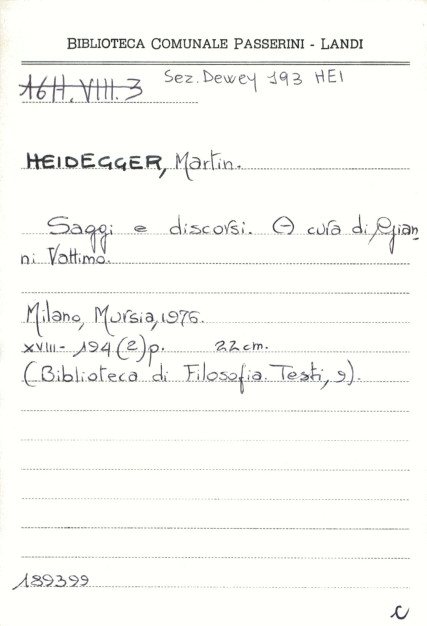 BIBLIOTECA COMUNALE PASSERINI - LANDI
16H.VIII.3 Sez. Dewey 193 HEI
HEIDEGGER, Martin.
Saggi e discorsi. A cura di Gian
ni Vattimo.
Milano, Mursia, 1976.
XVIII- 194 (2) p. 22 cm.
(Biblioteca di Filosofia. Testi, 9).
189399
c